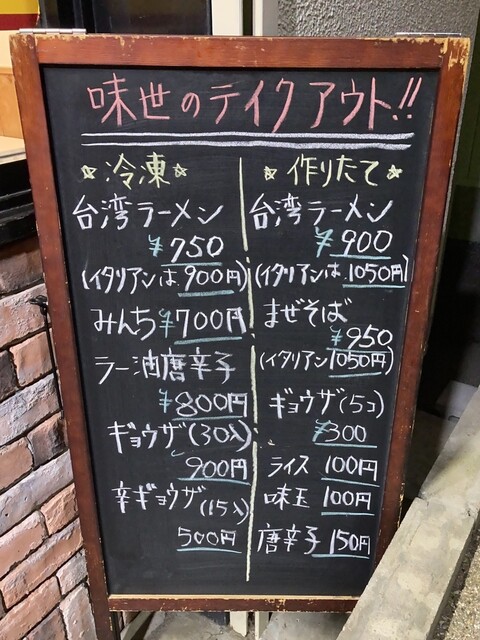 味世のテイクアウト!!
☆冷凍☆
台湾ラーメン
¥750
(イタリアンは900円)
みんち¥700円
ラー油唐辛子
¥800円
ギョウザ(30入)
900円
辛ギョウザ(15入)
500円
☆作りたて☆
台湾ラーメン
¥900
(イタリアンは1050円)
まぜそば
¥950
(イタリアン1050円)
ギョウザ(5コ)
¥300
ライス 100円
味玉 100円
唐辛子 150円